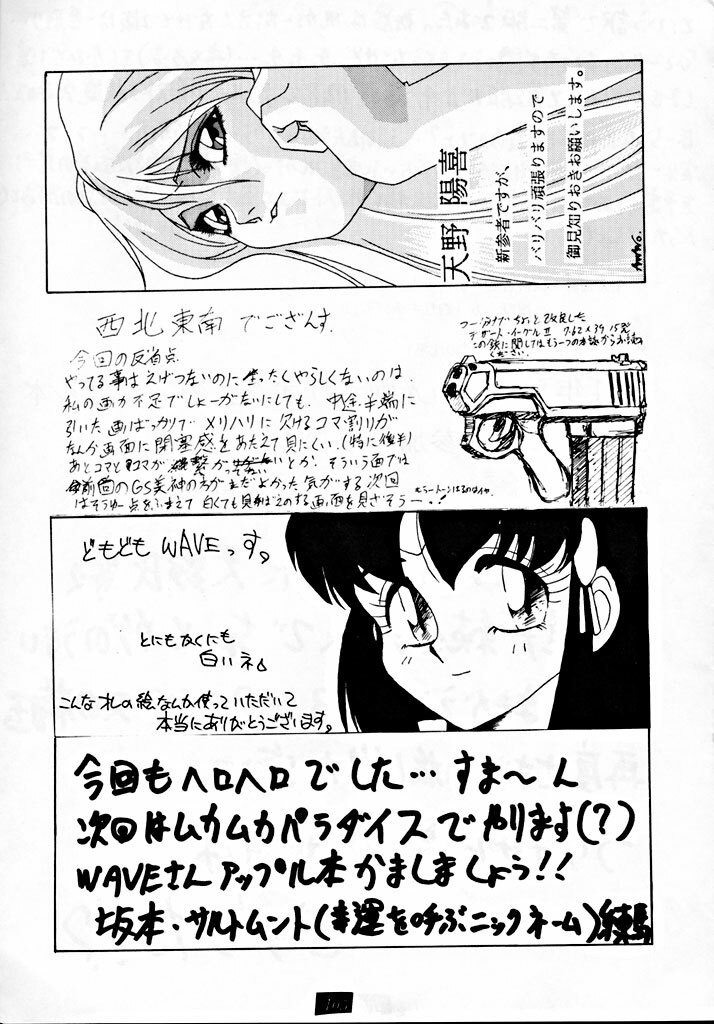 天野 陽喜
新参者ですが、
バリバリ頑張りますので
御見知りおきお願いします。
AMANO.
西北東南でござんす.
フー
デザート・イーグルⅡ 7.62×39 15発
この銃に関してはもう一つの本誌からお読み
ください.
今回の反省点
やってる事はえげつないのに全ったくやらしくないのは、
私の画力不足でしょーがないにしても、中途半端に
引いた画ばっかりでメリハリに欠けるコマ割りが
なんか画面に閉塞感をあたえて見にくい.(特に後半)
あとコマとコマが繋がってないとか、そういう面では
前回のGS美神の方がまだよかった気がする次回
はそうゆー点をふまえて白くても見ばえのする画面を見ざそうー・・!
どもども WAVEっす。
とにもかくにも
白いネ
こんな私の絵なんか使っていただいて
本当にありがとうございます。
今回もヘロヘロでした…すま〜ん
次回はムカムカパラダイスでやります(?)
WAVEさんアップル本かましましょう!!
坂本・サルトムント(幸運を呼ぶニックネーム)練馬
103